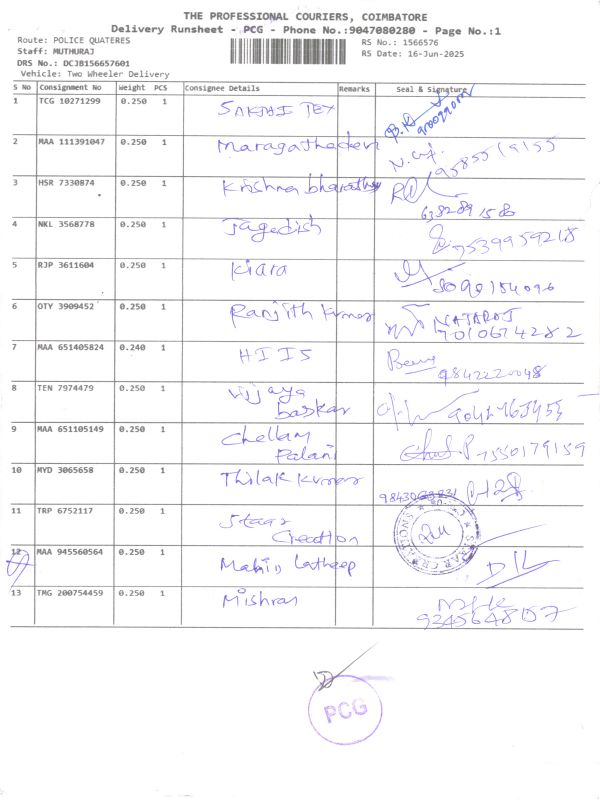 THE PROFESSIONAL COURIERS, COIMBATORE
Delivery Runsheet - PCG - Phone No.:9047080280 - Page No.:1
Route: POLICE QUATERES
Staff: MUTHURAJ
DRS No.: DCJB156657601
Vehicle: Two Wheeler Delivery
RS No.: 1566576
RS Date: 16-Jun-2025
S No Consignment No Weight PCS Consignee Details Remarks Seal & Signature
1 TCG 10271299 0.250 1 SAKTHI TEX
2 MAA 111391047 0.250 1 Maragathadevi 9585519155
3 HSR 7330874 0.250 1 Krishna bharathy
6382891580
4 NKL 3568778 0.250 1 Jagedish 7539959218
5 RJP 3611604 0.250 1 Kiara
8090154096
6 OTY 3909452 0.250 1 Ranjith Kumar NATARAJ
7010674282
7 MAA 651405824 0.240 1 HIIS
9842220048
8 TEN 7974479 0.250 1 Vijaya
baskar
9 MAA 651105149 0.250 1 Chellam
Palani 7550179159
10 MYD 3065658 0.250 1 Thilak Kumar
11 TRP 6752117 0.250 1 Staar
Creation
12 MAA 945560564 0.250 1
13 TMG 200754459 0.250 1 Mishras
PCG